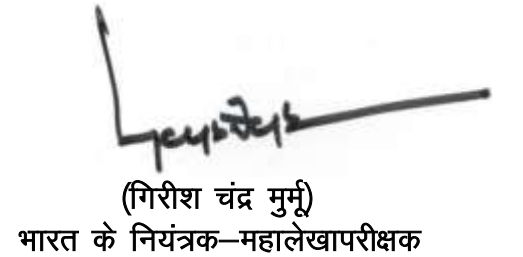 (गिरीश चंद्र मुर्मू)
भारत के नियंत्रक–महालेखापरीक्षक